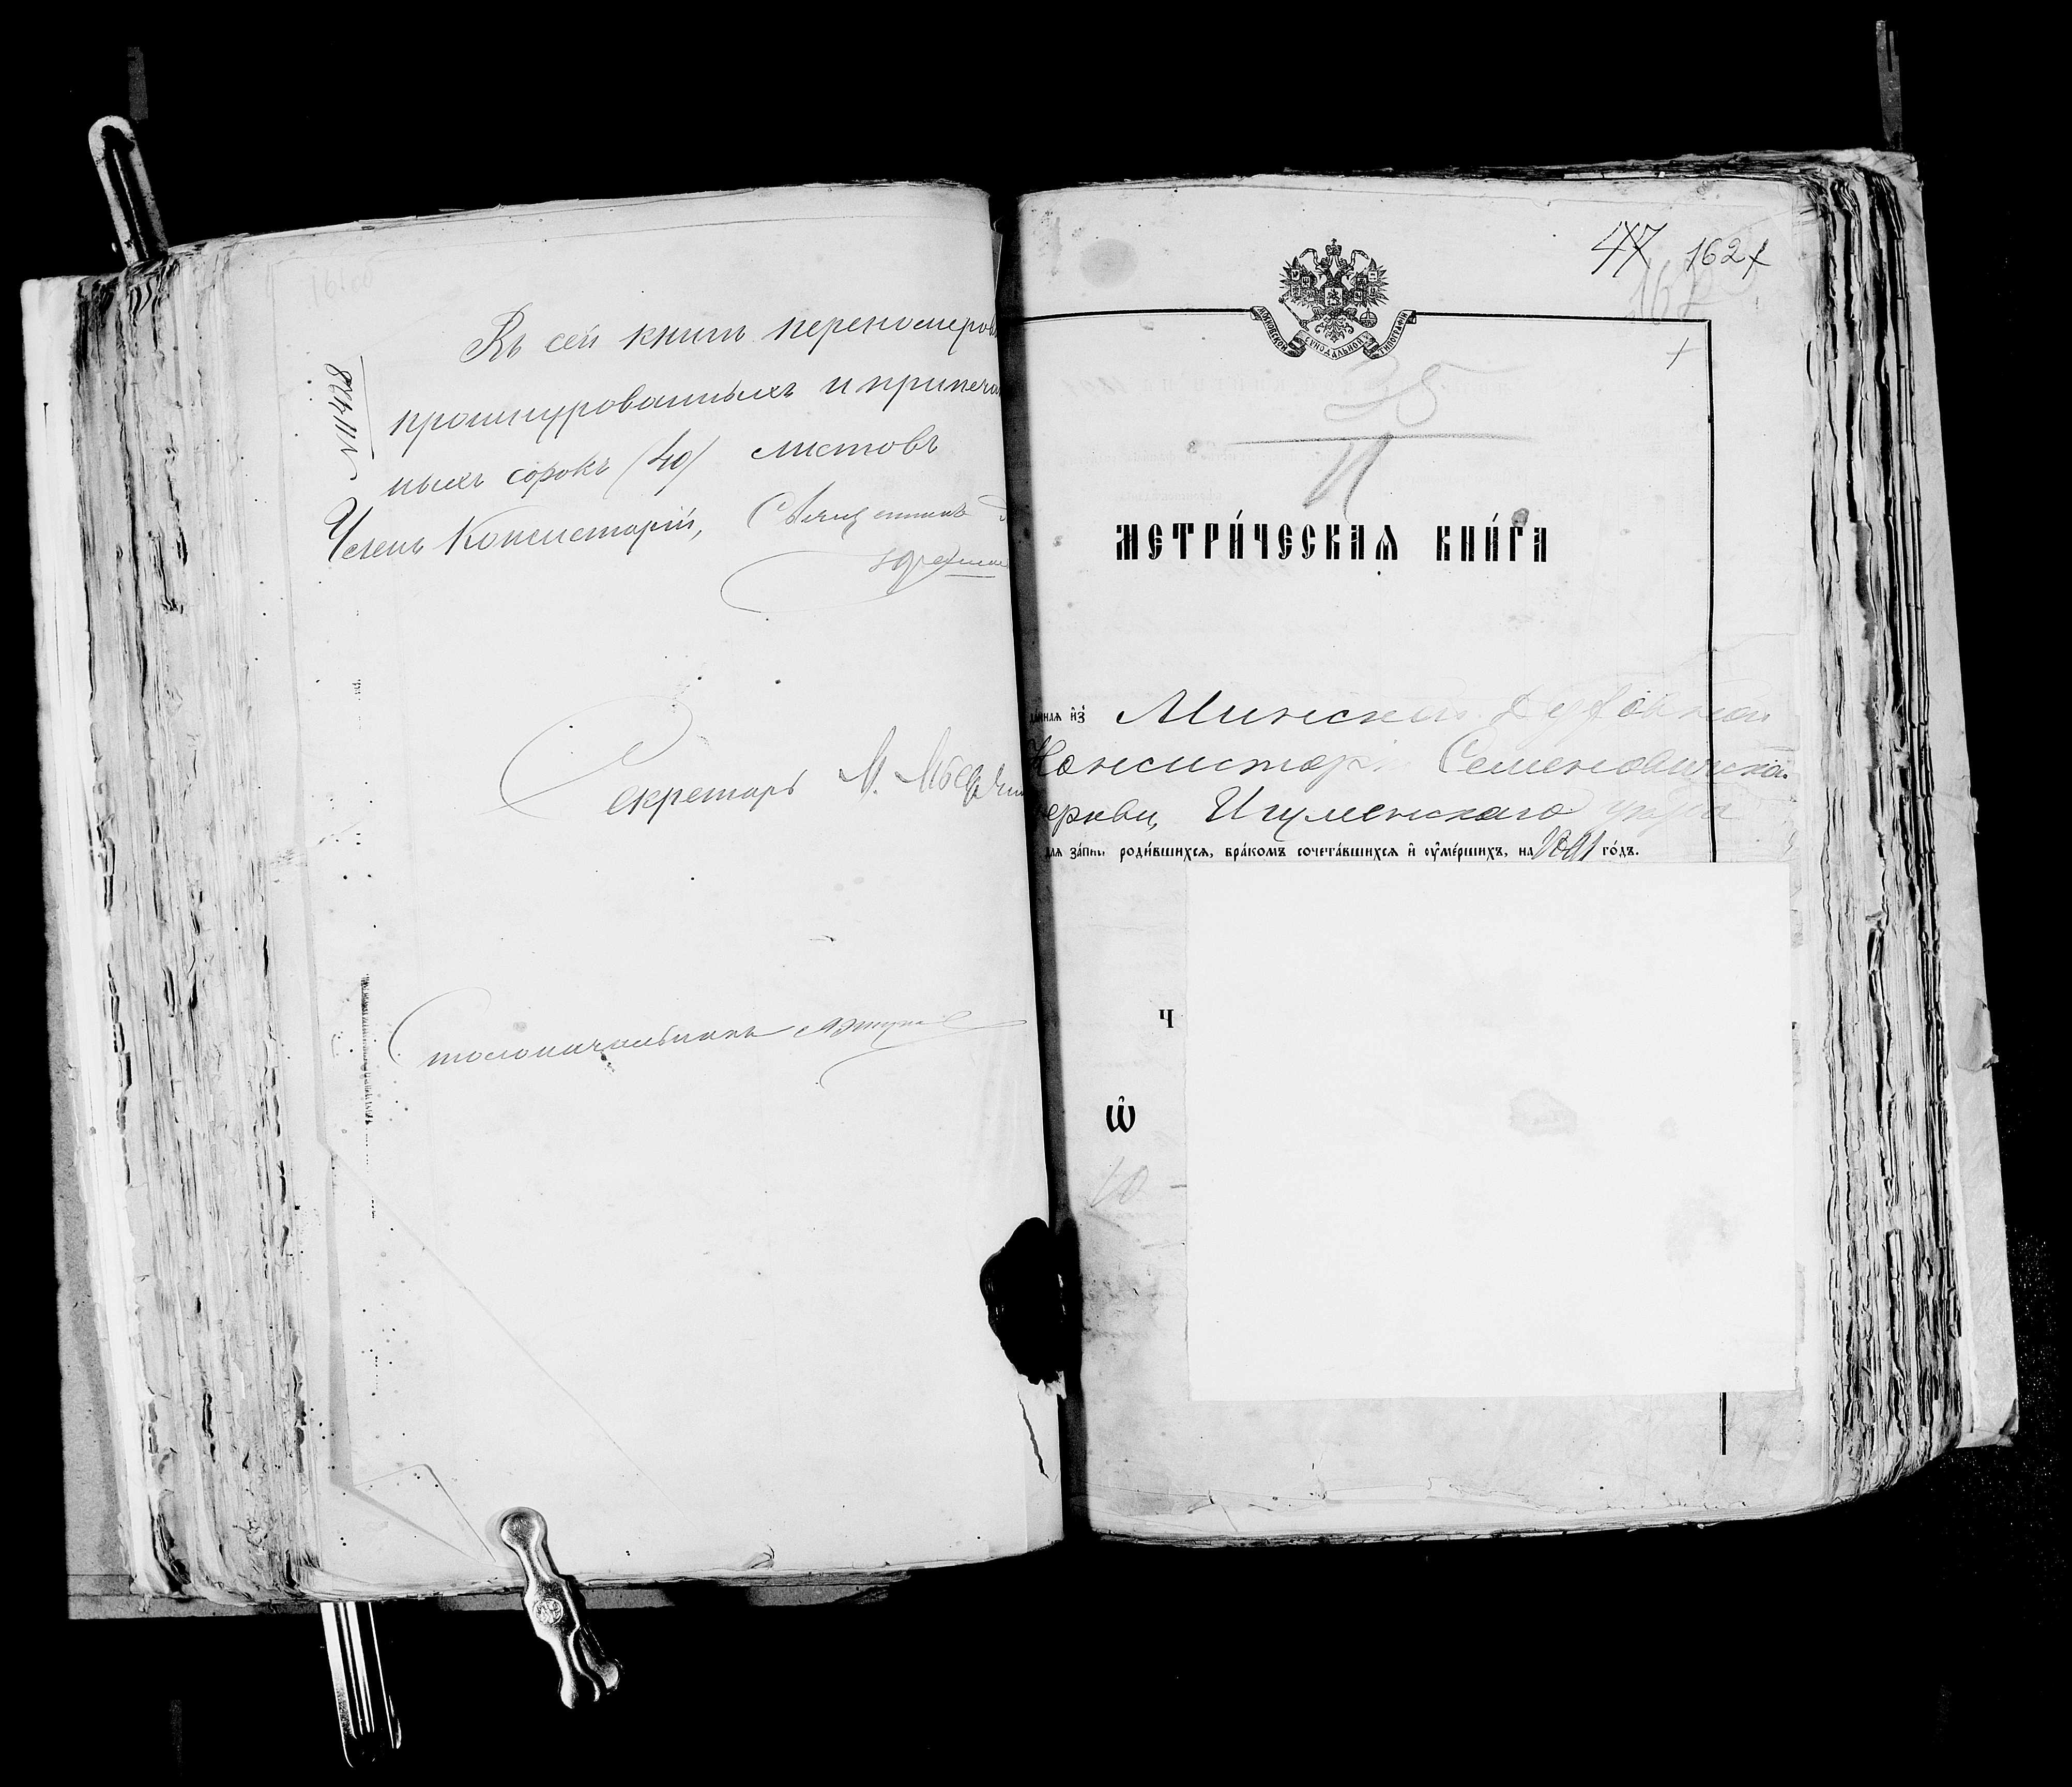 Въ сей книгѣ переномеров
прошнурованныхъ и припеча
ныхъ сорокъ /40/ листовъ
Членъ Консисторіи, Священникъ
Секретарь М.
Столоначальникъ
47 162
35
МЕТРИ́ЧЕСКАѦ КНИ́ГА
Минской Духовной
Консисторіи Семеновичской
церкви, Игуменскаго уѣзда
для за́писи роди́вшихсѧ, бра́комъ сочета́вшихсѧ и҆ ᲂу҆ме́ршихъ, на 1891 го́дъ.
Ч
Ѡ҆
10